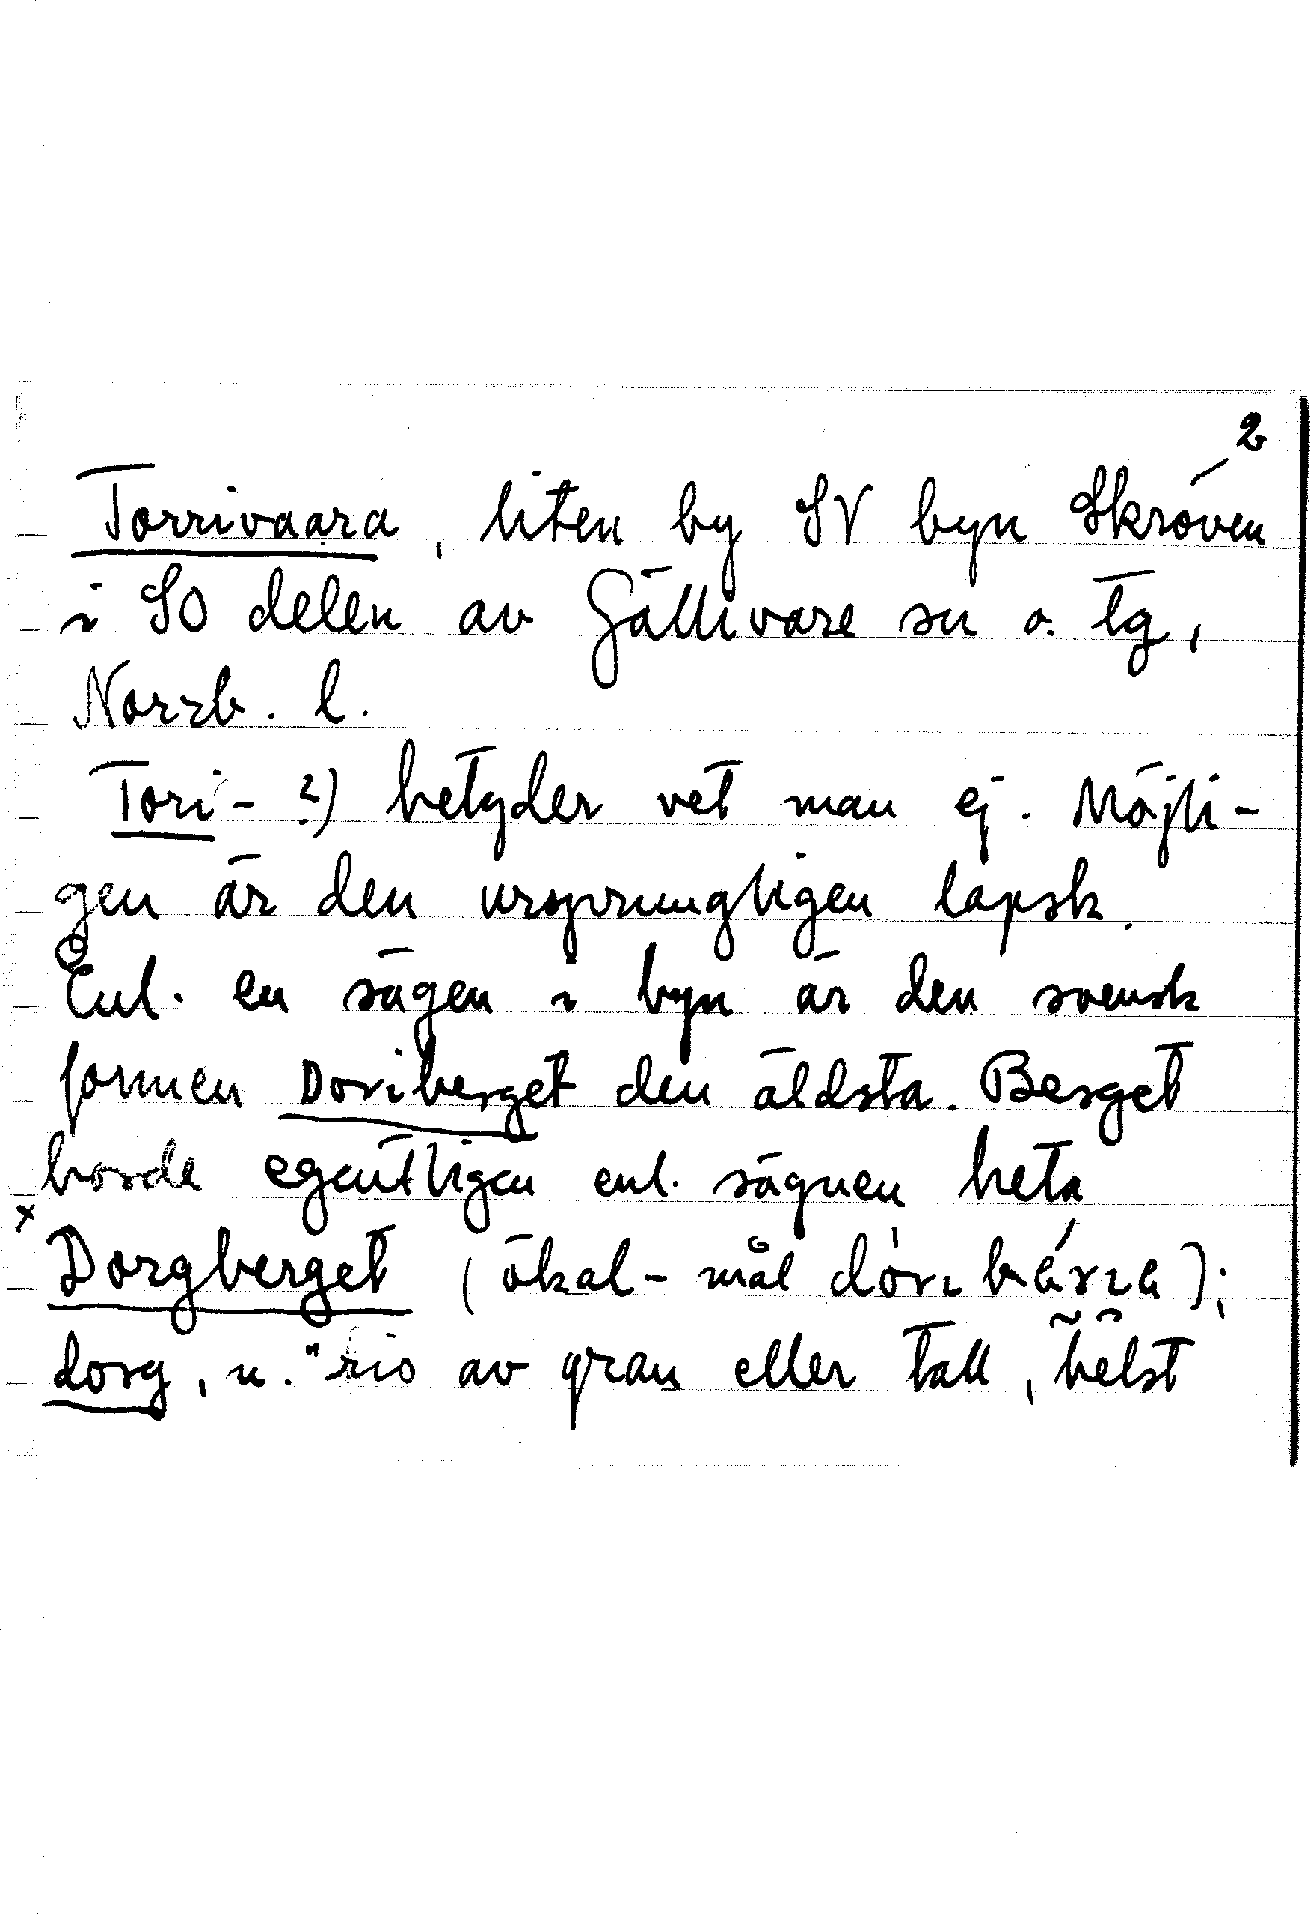 2
Torrivaara, liten by SV byn Skröven
i SO delen av Gällivare sn o. tg,
Norrb. l.
Tori- ?) betyder vet man ej. Möjli-
gen är den ursprungligen lapsk.
Enl. en sägen i byn är den svensk
formen Doriberget den äldsta. Berget
borde egentligen enl. sägnen heta
x
Dorgberget (ökal-mål
dorg, n. "ris av gran eller tall, helst